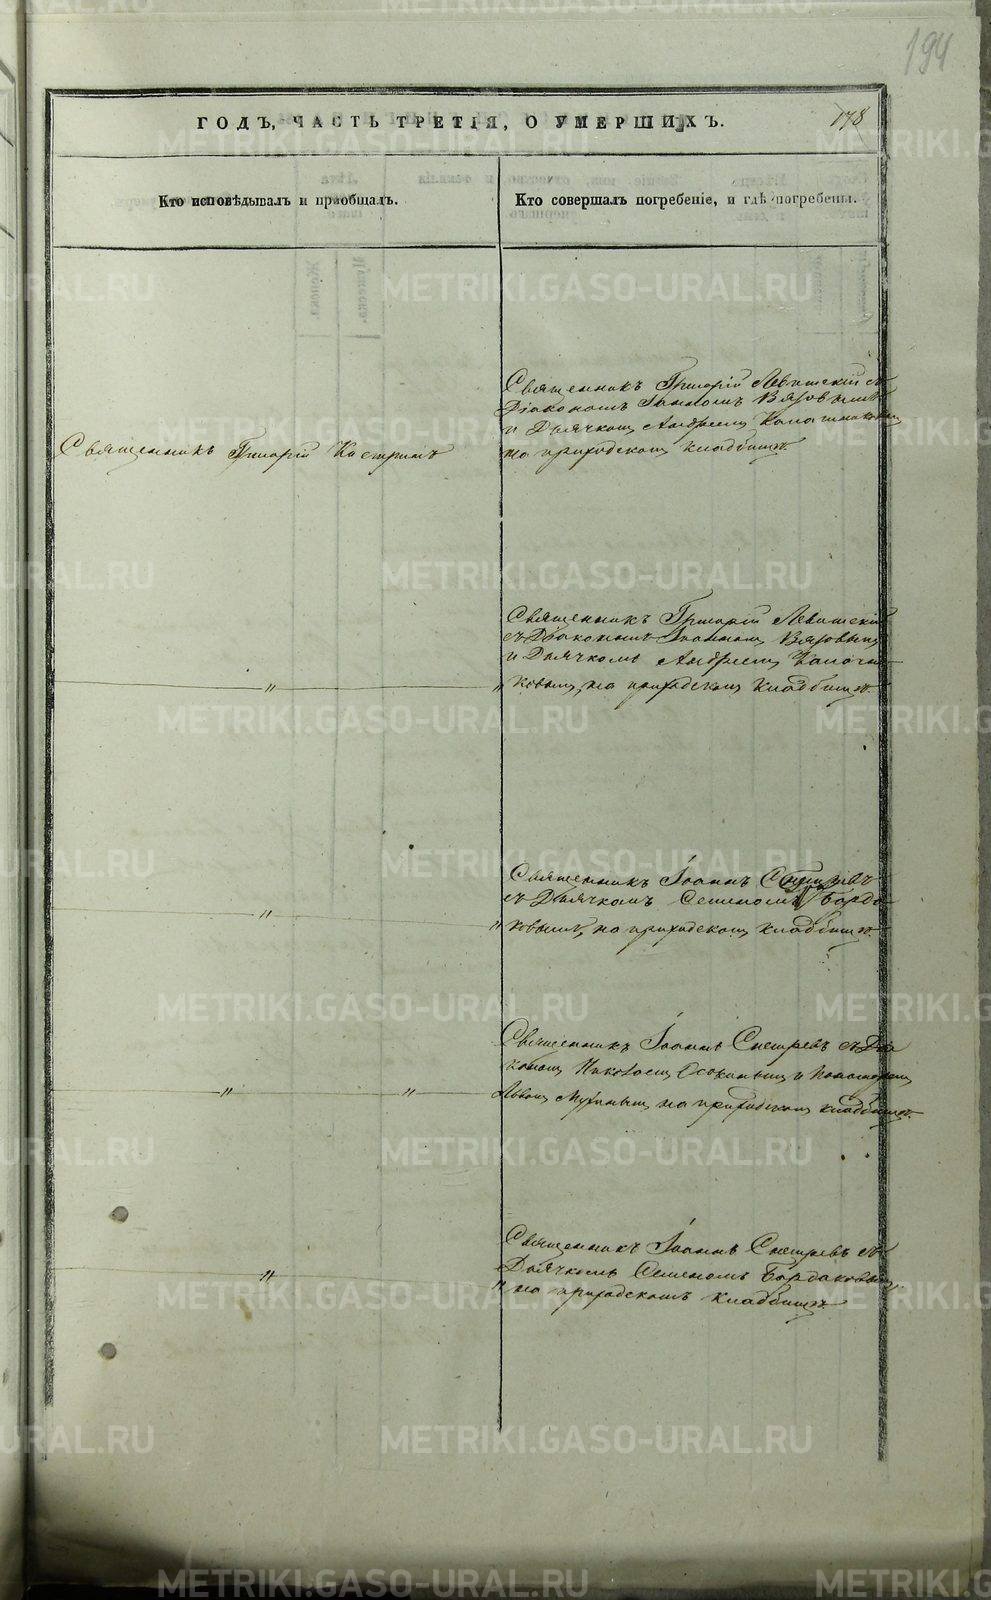 194
ГОДЪ, ЧАСТЬ ТРЕТІЯ, О УМЕРШИХЪ.
178
Кто исповѣдывалъ и пріобщалъ.
Кто совершалъ погребеніе, и гдѣ погребены.
Священникъ Григорій Левитскій съ
Діакономъ Іоанномъ Вязовымъ
и Дьячкомъ Андреемъ
Священникъ Григорій Костринъ
на приходскомъ кладбищѣ.
Священникъ Григорій Левитскій
съ Діакономъ Іоанномъ Вязовымъ
и Дьячкомъ Андреемъ
〃 〃 ковымъ, на приходскомъ кладбищѣ.
Священникъ Іоаннъ
съ Дьячкомъ Семеномъ Борда-
〃 〃 ковымъ, на приходскомъ кладбищѣ.
Священникъ Іоаннъ съ Діа
кономъ Николаемъ и Пономаремъ
〃 〃 на приходскомъ кладбищѣ.
Священникъ Іоаннъ съ
Дьячкомъ Семеномъ Бордаковымъ,
〃 〃 на приходскомъ кладбищѣ
METRIKI.GASO-URAL.RU